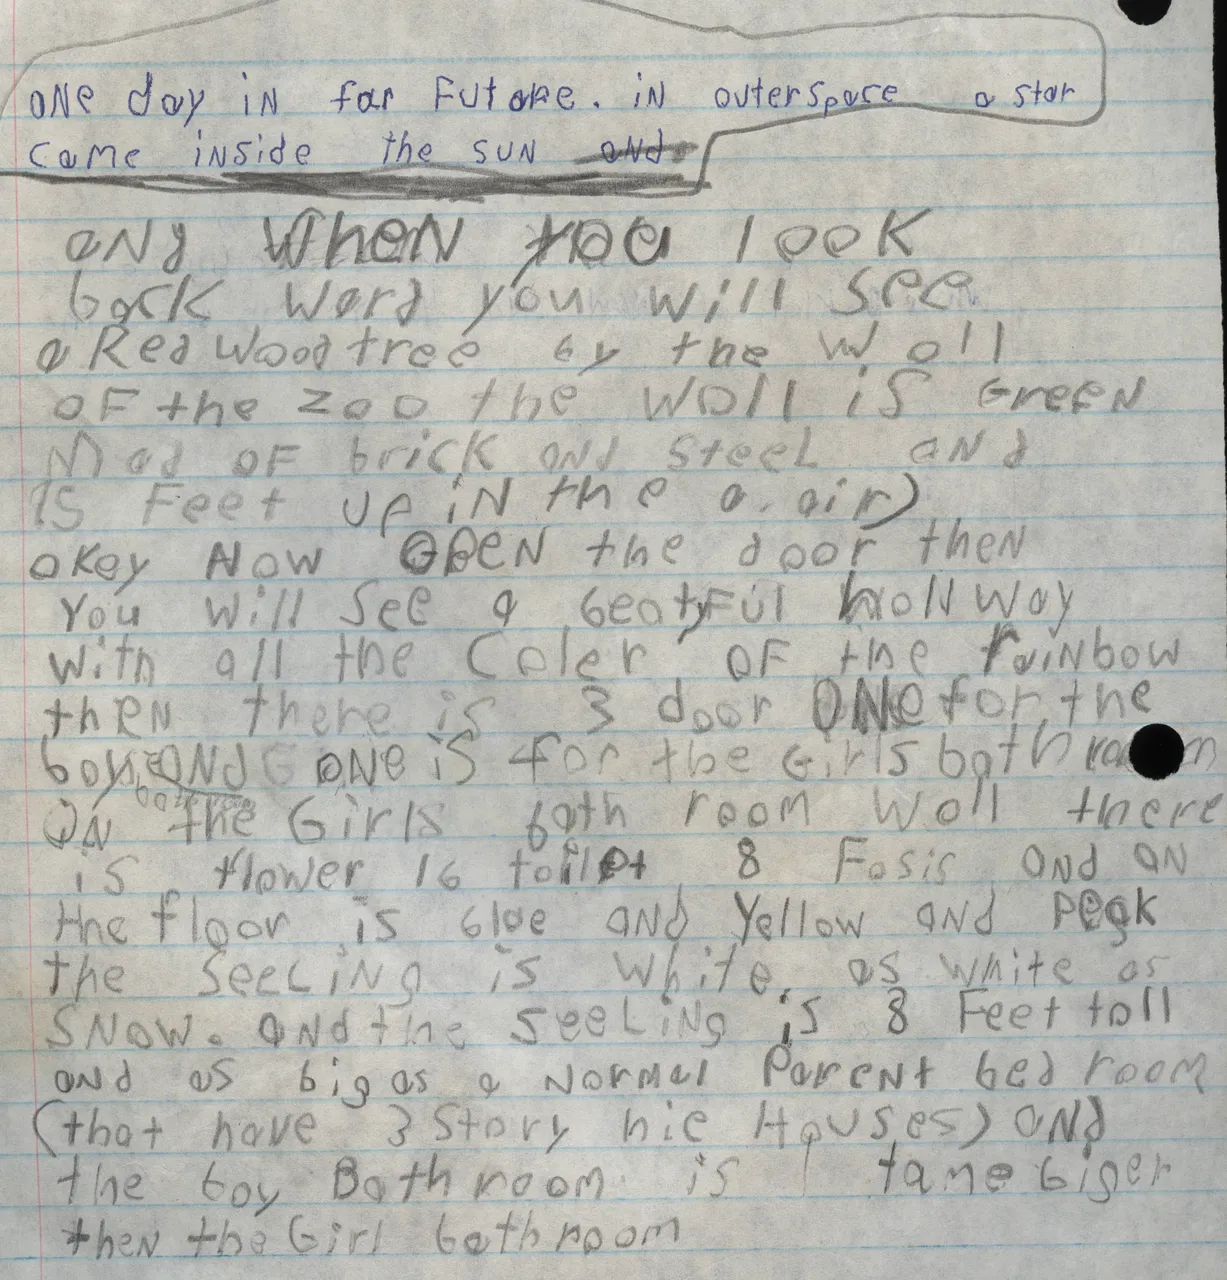 ONe day iN far Futore. iN outerspace a star
came iNside the SUN and
aNd WheN you look
back ward you will see
a Red Wood tree by the Wall
OF the Zoo the Wall iS GreeN
Mad OF brick aNd Steel aNd
15 Feet up iN the a. air)
okey Now OPEN the door theN
You Will See a beatyFul hallway
With all the Coler OF the rainbow
theN there is 3 door ONe for the
boy bathroom aNd ONe iS for the Girls bathroom
ON the Girls bath room Wall there
is flower 16 toilet 8 Fasis aNd aN
the floor is blue aNd Yellow aNd peak
the SeeLiNg is White, as White as
SNow. aNd the SeeLiNg is 8 Feet tall
aNd as big as a NorMal PareNt bed room
(that have 3 Story hie Houses) aNd
the boy Bath room is 1 tame biger
theN the Girl bathroom